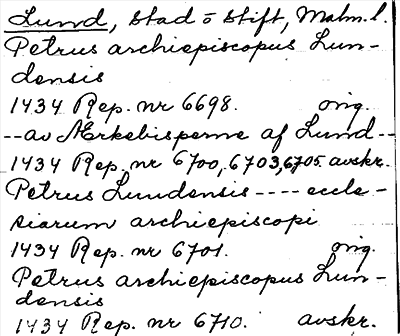 Lund, stad o stift, Malm. l.
Petrus archiepiscopus Lun-
densis
1434 Rep. nr 6698. orig.
--av Ærkebisperne af Lund--
1434 Rep. nr 6700, 6703, 6705. avskr.
Petrus Lundensis ---- eccle-
siarum archiepiscopi
1434 Rep. nr 6701. orig.
Petrus archiepiscopus Lun-
densis
1434 Rep. nr 6710. avskr.